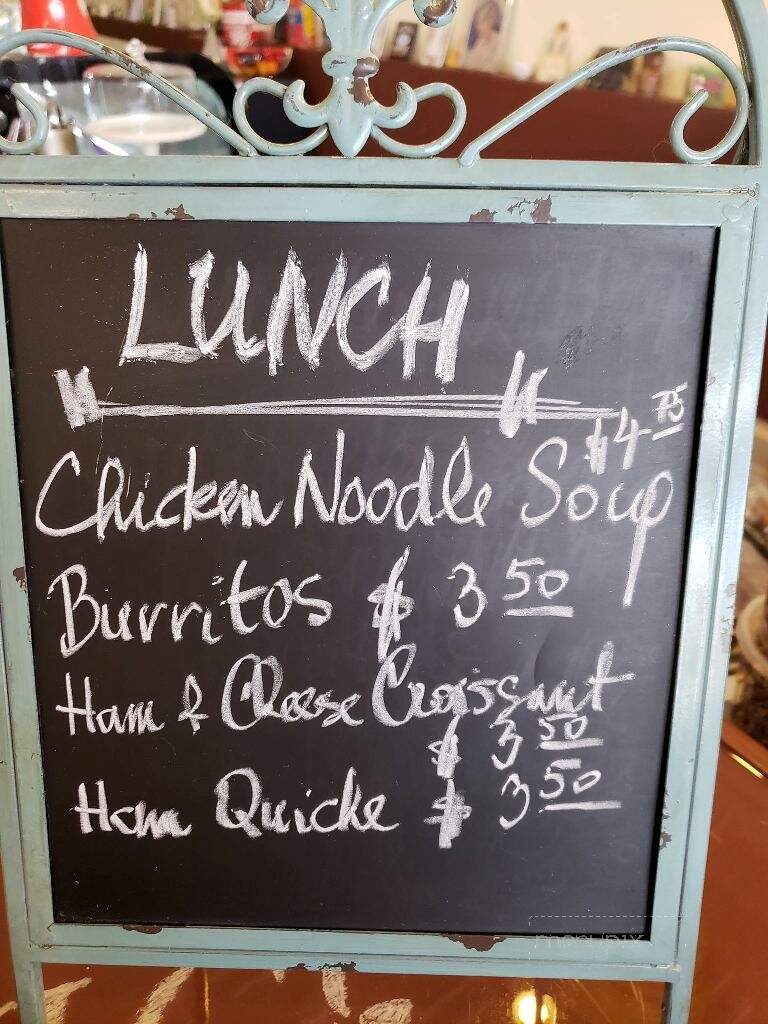 LUNCH
$4 75
Chicken Noodle Soup
Burritos $ 3 50
Ham & Cheese Croissant
$ 3 50
Ham Quiche $ 3 50
menupix